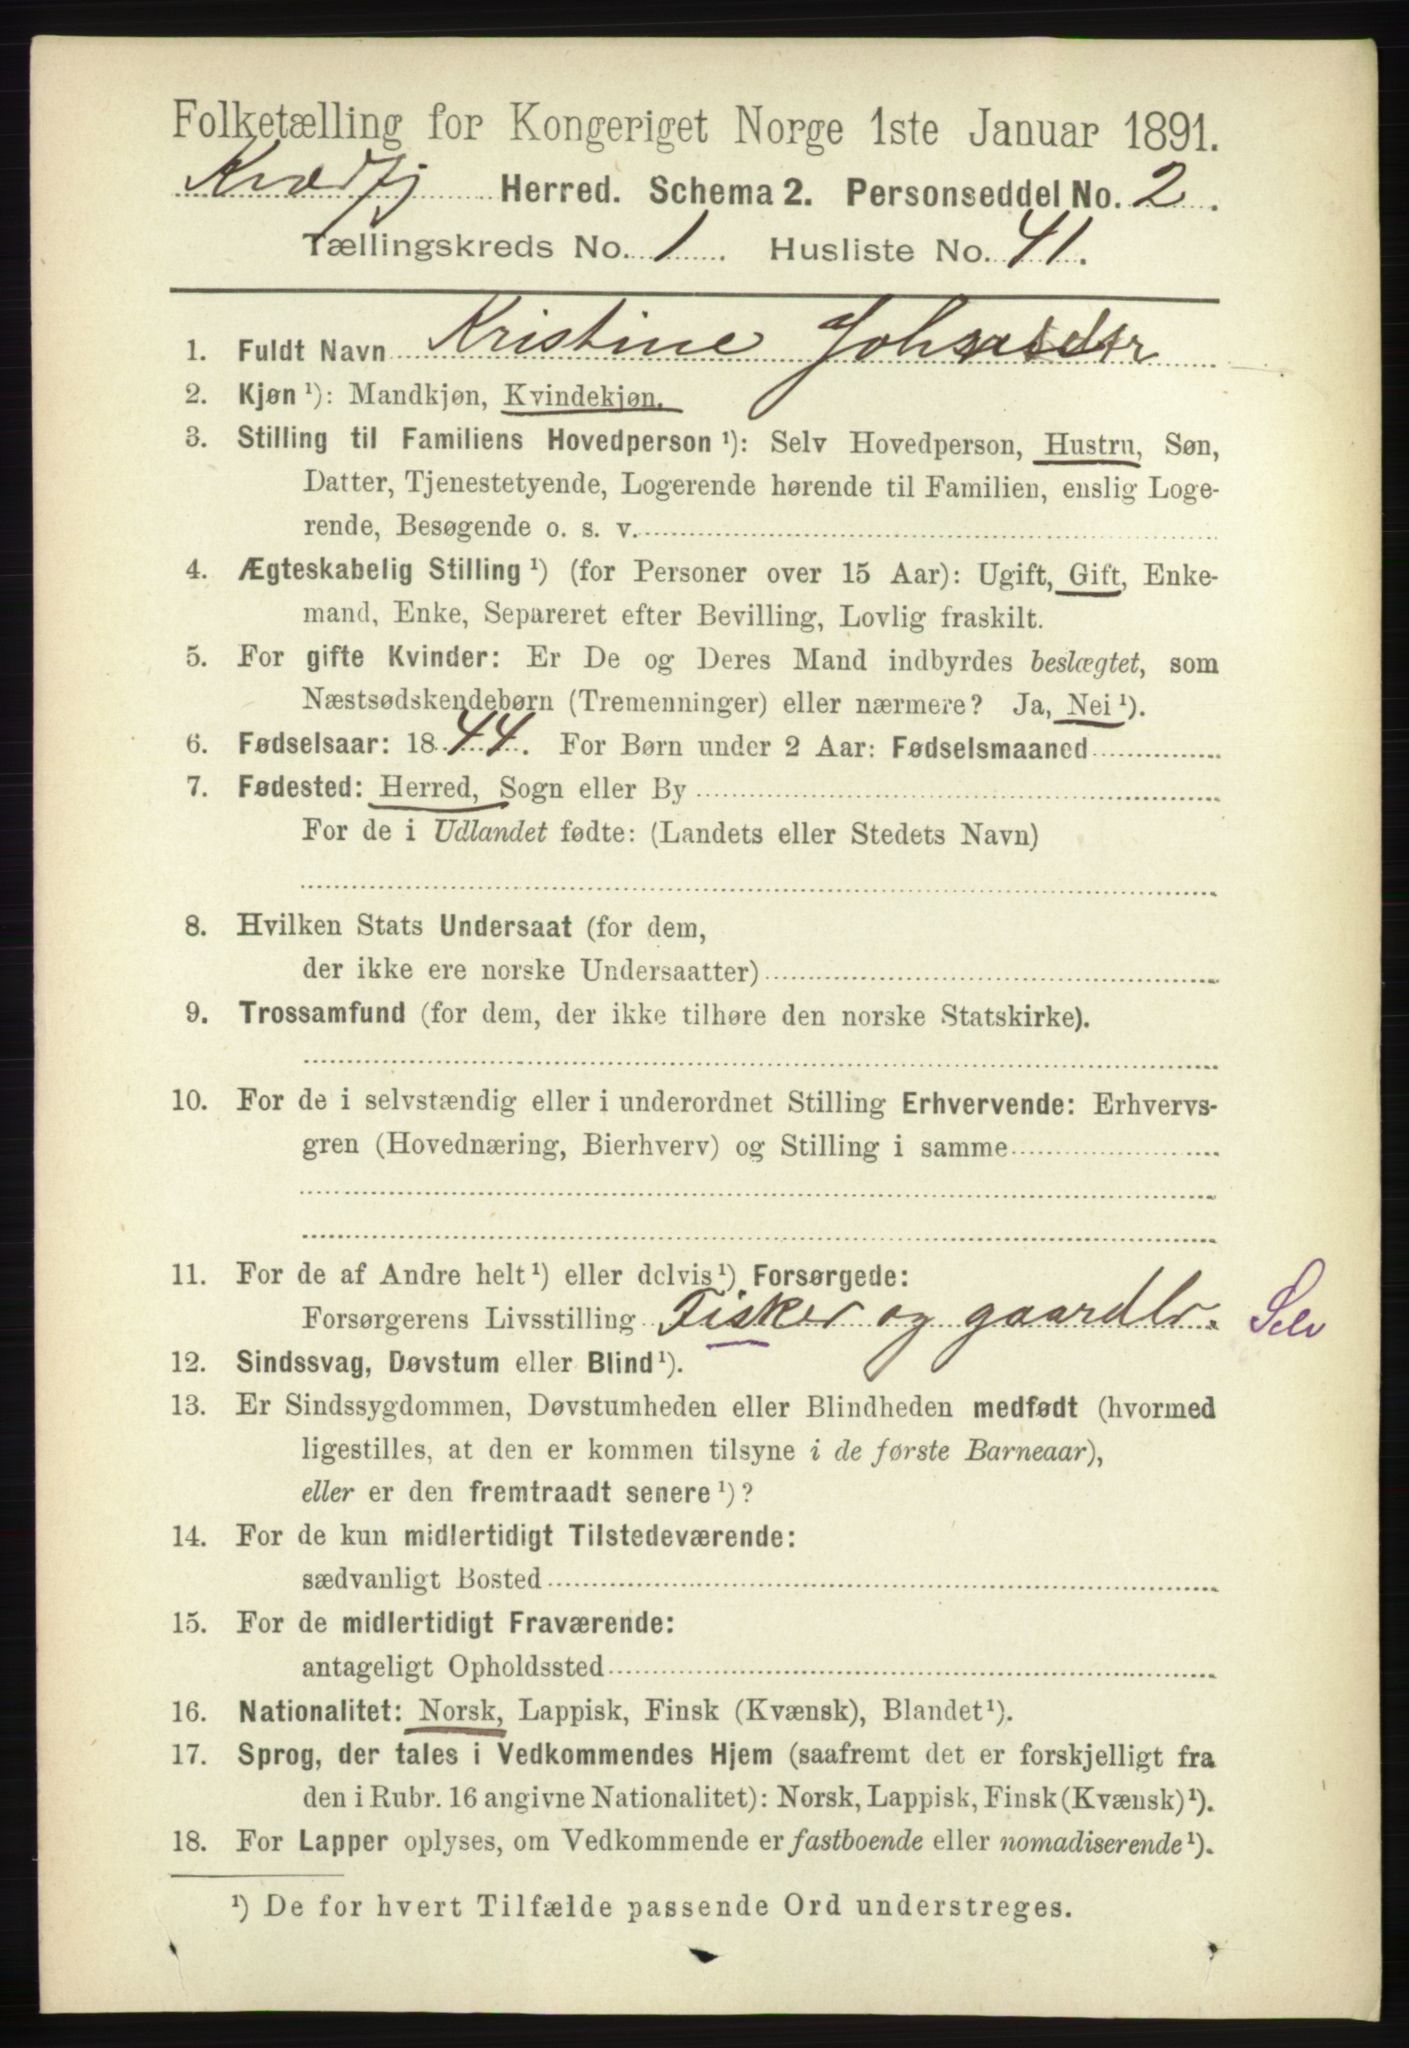 Folketælling for Kongeriget Norge 1ste Januar 1891.
Kvædfj Herred. Schema 2. Personseddel No. 2.
Tællingskreds No. 1. Husliste No. 41.
1. Fuldt Navn Kristine Johnsdtr
2. Kjøn ¹): Mandkjøn, Kvindekjøn.
3. Stilling til Familiens Hovedperson ¹): Selv Hovedperson, Hustru, Søn,
Datter, Tjenestetyende, Logerende hørende til Familien, enslig Loge-
rende, Besøgende o. s. v.
4. Ægteskabelig Stilling ¹) (for Personer over 15 Aar): Ugift, Gift, Enke-
mand, Enke, Separeret efter Bevilling, Lovlig fraskilt.
5. For gifte Kvinder: Er De og Deres Mand indbyrdes beslægtet, som
Næstsødskendebørn (Tremenninger) eller nærmere? Ja, Nei ¹).
6. Fødselsaar: 1844. For Børn under 2 Aar: Fødselsmaaned
7. Fødested: Herred, Sogn eller By
For de i Udlandet fødte: (Landets eller Stedets Navn)
8. Hvilken Stats Undersaat (for dem,
der ikke ere norske Undersaatter)
9. Trossamfund (for dem, der ikke tilhøre den norske Statskirke).
10. For de i selvstændig eller i underordnet Stilling Erhvervende: Erhvervs-
gren (Hovednæring, Bierhverv) og Stilling i samme
11. For de af Andre helt ¹) eller delvis ¹) Forsørgede:
Forsørgerens Livsstilling Fisker og gaardbr. Selv
12. Sindssvag, Døvstum eller Blind ¹).
13. Er Sindssygdommen, Døvstumheden eller Blindheden medfødt (hvormed
ligestilles, at den er kommen tilsyne i de første Barneaar),
eller er den fremtraadt senere ¹)?
14. For de kun midlertidigt Tilstedeværende:
sædvanligt Bosted
15. For de midlertidigt Fraværende:
antageligt Opholdssted
16. Nationalitet: Norsk, Lappisk, Finsk (Kvænsk), Blandet ¹).
17. Sprog, der tales i Vedkommendes Hjem (saafremt det er forskjelligt fra
den i Rubr. 16 angivne Nationalitet): Norsk, Lappisk, Finsk (Kvænsk) ¹).
18. For Lapper oplyses, om Vedkommende er fastboende eller nomadiserende ¹).
¹) De for hvert Tilfælde passende Ord understreges.